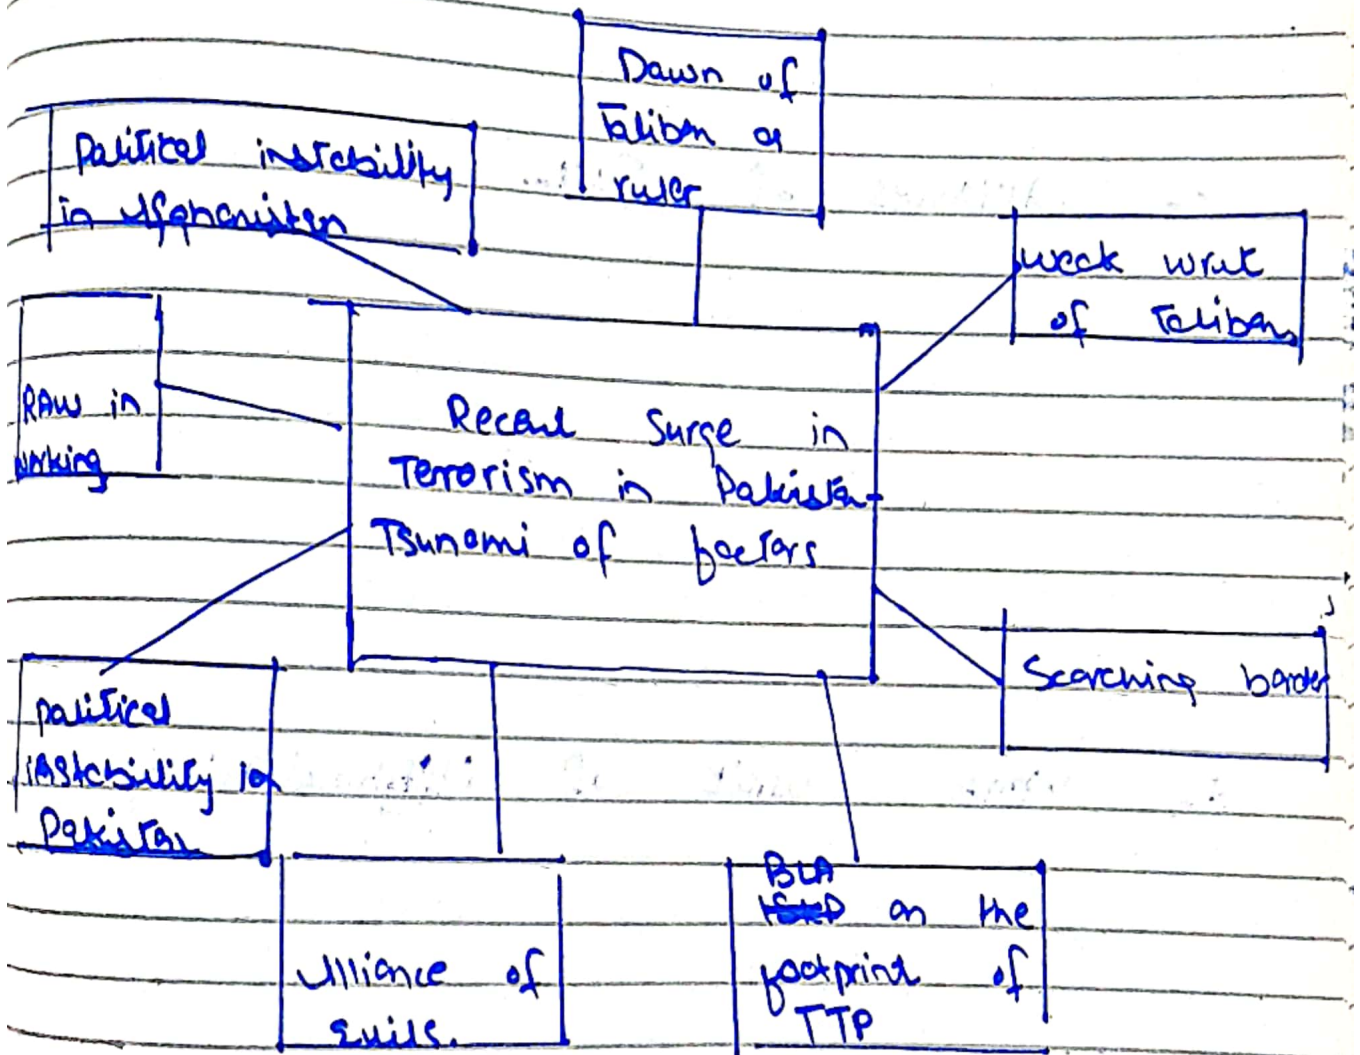 Dawn of
Taliban as
ruler
Political instability
in Afghanistan
weak writ
of Taliban
RAW in
working
Recent Surge in
Terrorism in Pakistan-
Tsunami of factors
Searching border
political
instability in
Pakistan
Alliance of
Evils.
BLA
on the
footprint of
TTP